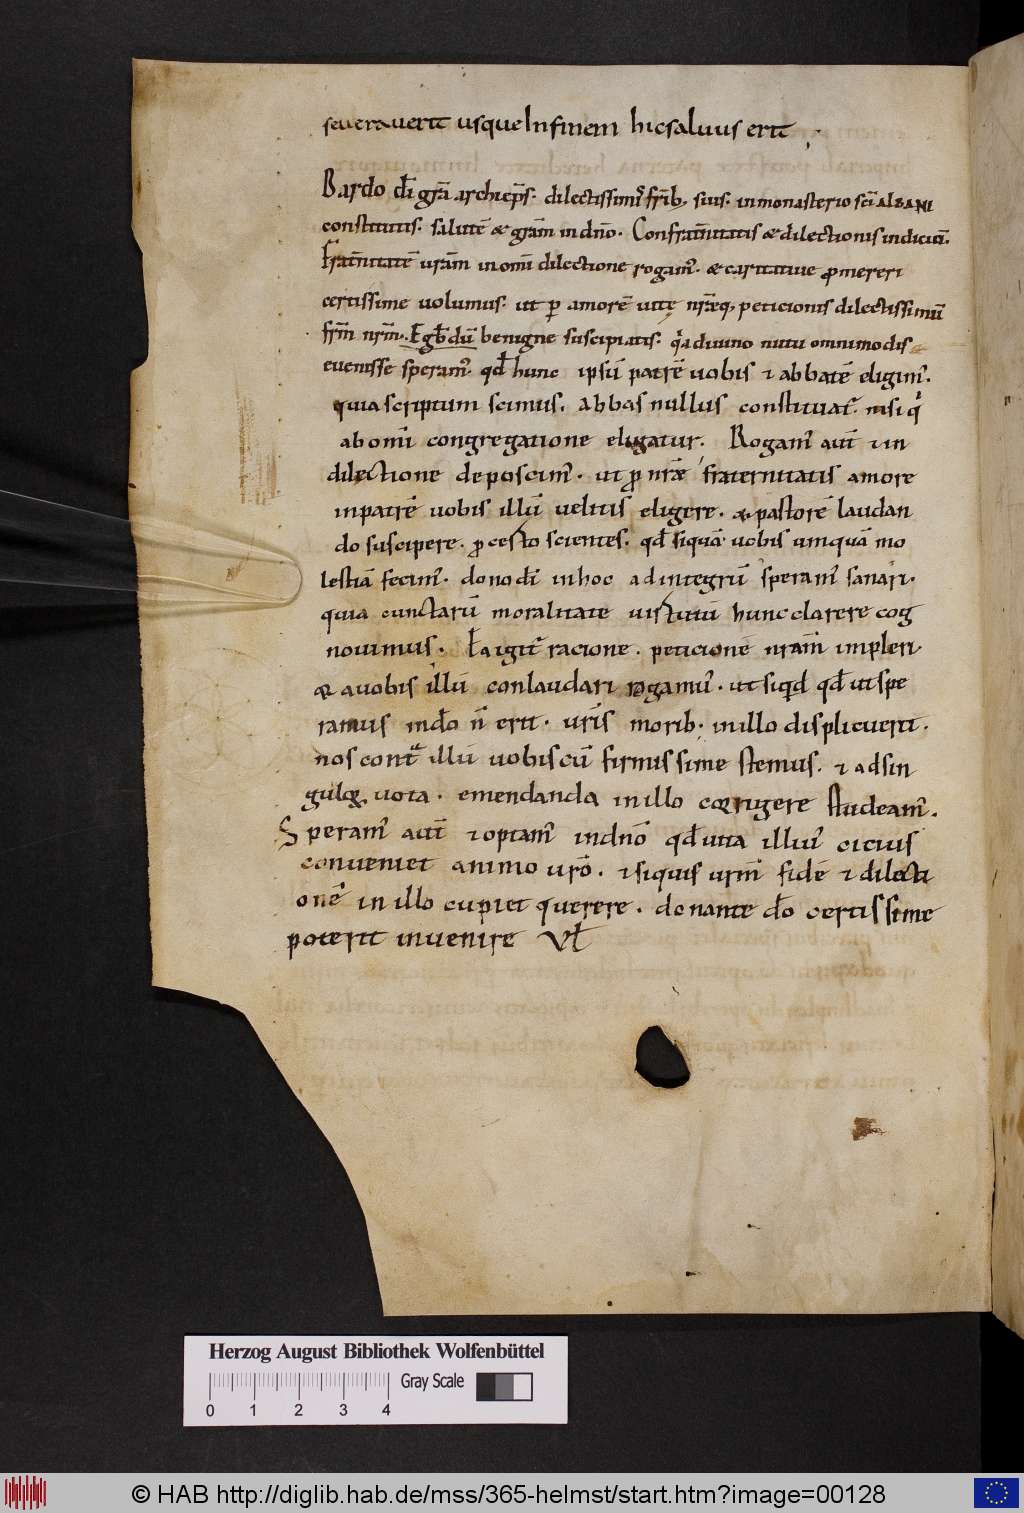 severaverit usque In finem hic salvus erit
Bardo dī grā archiep̄s. dilectissimis fr̄ib; suis. in monasterio sc̄i ALBANI
constitutis. salutē & grām in dn̄o. Confrat̄nitatis & dilectionis indiciū.
Frat̄nitatē vrām in om̄i dilectione rogam᷒. & caritative ꝓmereri
certissime volumus. ut ꝑ amorē vitę nr̄ęq; peticionis dilectissimū
fr̄m nr̄m. Egb̄dū benigne suscipiatis. q̇a divino nutu omnimodis
evenisse speram᷒. qd̄ hunc ipsū patrē vobis & abbatē eligim᷒.
quia scriptum scimus. abbas nullus constituat᷒. nisi q̇
ab om̄i congregatione eligatur. Rogam᷒ aut̄ & in
dilectione deposcim᷒. ut ꝓ nr̄ę fraternitatis amore
in patrē vobis illū velitis eligere. & pastorē laudan
do suscipere. ꝓ certo scientes. qd̄ si quā vobis umquā mo
lestiā fecim᷒. dono dī in hoc ad integrū speram᷒ sanari.
quia cunctarū moralitate virtutū hunc clarere cog
novimus. Ea igit᷒ racione. peticionē nrām impleri
& a vobis illū conlaudari rogamu᷒. ut siqd̄ qd̄ ut spe
ramus in dō n̄ erit. vr̄is morib; in illo displicuerit.
nos cont̄ illū vobiscū firmissime stemus. & ad sin
gulo᷒ vota. emendanda in illo corrigere studeam᷒.
Speram᷒ aut̄ & optam᷒ in dn̄o qd̄ vita illius cicius
conveniet animo vr̄o. & siquis vr̄m fidē & dilecti
onē in illo cupiet querere. donante dō certissime
poterit invenire Vl̄
Herzog August Bibliothek Wolfenbüttel
Gray Scale
0 1 2 3 4
© HAB http://diglib.hab.de/mss/365-helmst/start.htm?image=00128